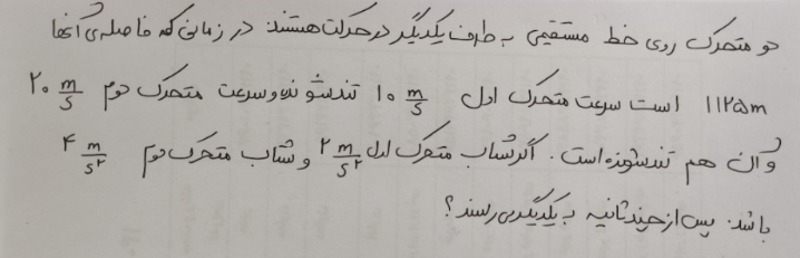 دو متحرک روی خط مستقیمی به طرف یکدیگر در حرکت هستند در زمانی که فاصله ی آنها
۱۱۲۵m است سرعت متحرک اول ۱۰ m/s تندشونده و سرعت متحرک دوم ۲۰ m/s
و آن هم تندشونده است. اگر شتاب متحرک اول ۲ m/s² و شتاب متحرک دوم ۴ m/s²
باشد. پس از چند ثانیه به یکدیگر می رسند؟